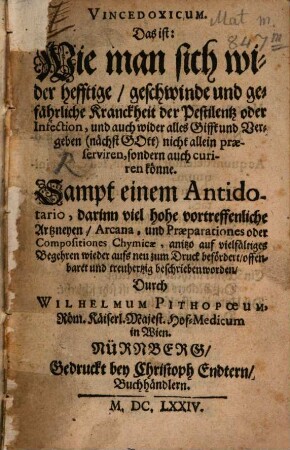 VINCEDOXICUM.
Mat m.
847 m
Das ist:
Wie man sich wi-
der hefftige / geschwinde und ge-
fährliche Kranckheit der Pestilentz oder
Infection, und auch wider alles Gifft und Ver-
geben (nächst GOtt) nicht allein præ-
serviren, sondern auch curi-
ren könne.
Sampt einem Antido-
tario, darinn viel hohe vortreffenliche
Artzneyen / Arcana, und Præparationes oder
Compositiones Chymicæ, anitzo auf vielfältiges
Begehren wieder aufs neu zum Druck befördert / offen-
baret und treuhertzig beschrieben worden /
Durch
WILHELMUM PITHOPŒUM,
Röm. Käiserl. Majest. Hof-Medicum
in Wien.
NÜRNBERG /
Gedruckt bey Christoph Endtern /
Buchhändlern.
M. DC. LXXIV.